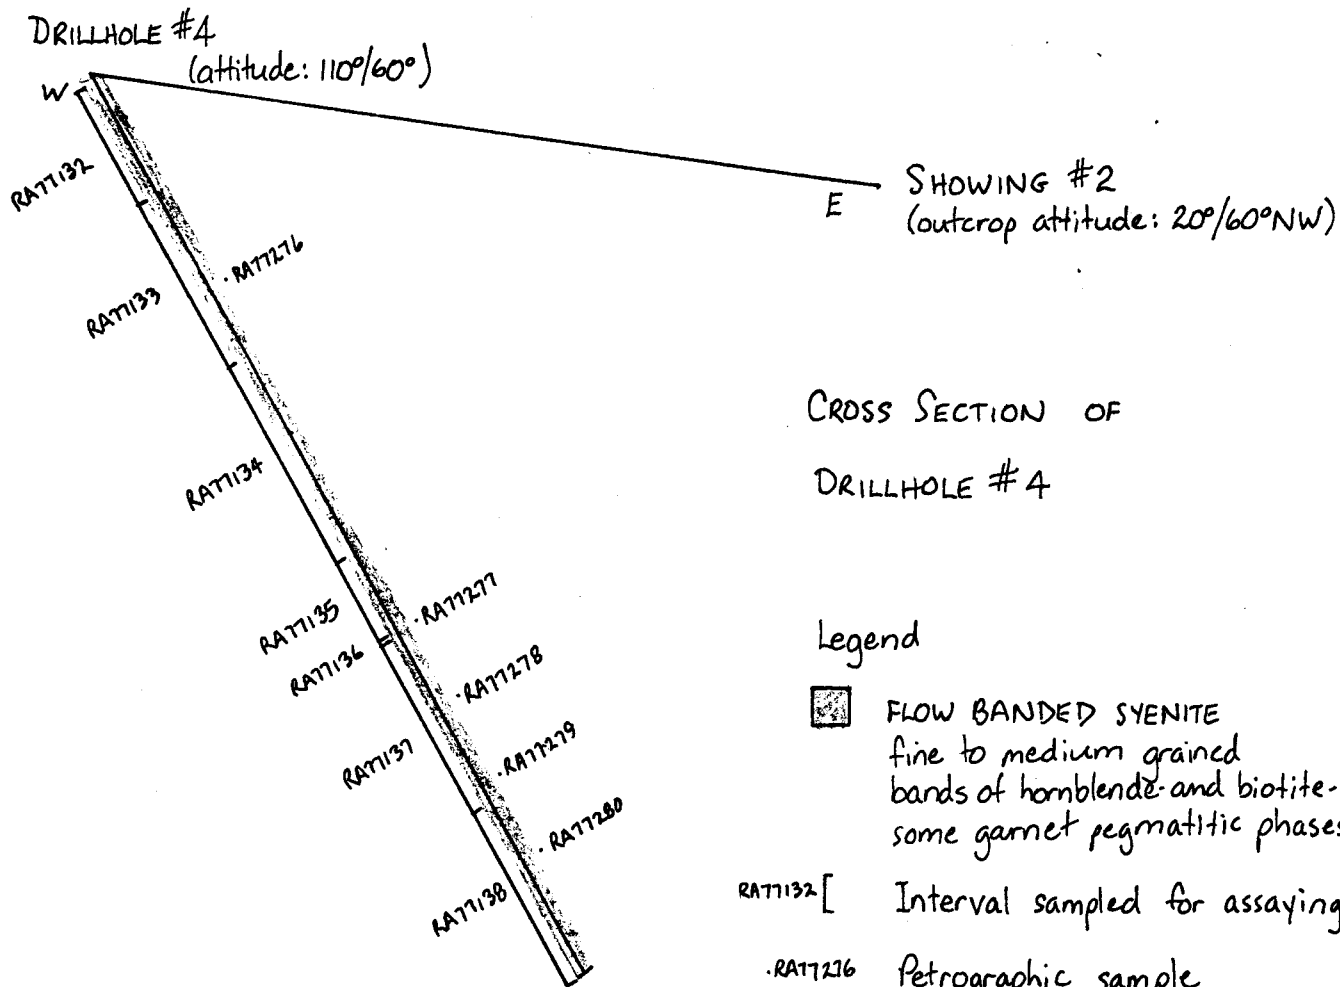 DRILLHOLE #4
(attitude: 110°/60°)
W
E
SHOWING #2
(outcrop attitude: 20°/60°NW)
RA77132
RA77133
RA77134
RA77135
RA77136
RA77137
RA77138
.RA77276
.RA77277
.RA77278
.RA77279
.RA77280
CROSS SECTION OF
DRILLHOLE #4
Legend
FLOW BANDED SYENITE
fine to medium grained
bands of hornblende-and biotite-
some garnet pegmatitic phases
RA77132[ Interval sampled for assaying
.RA77276 Petrographic sample